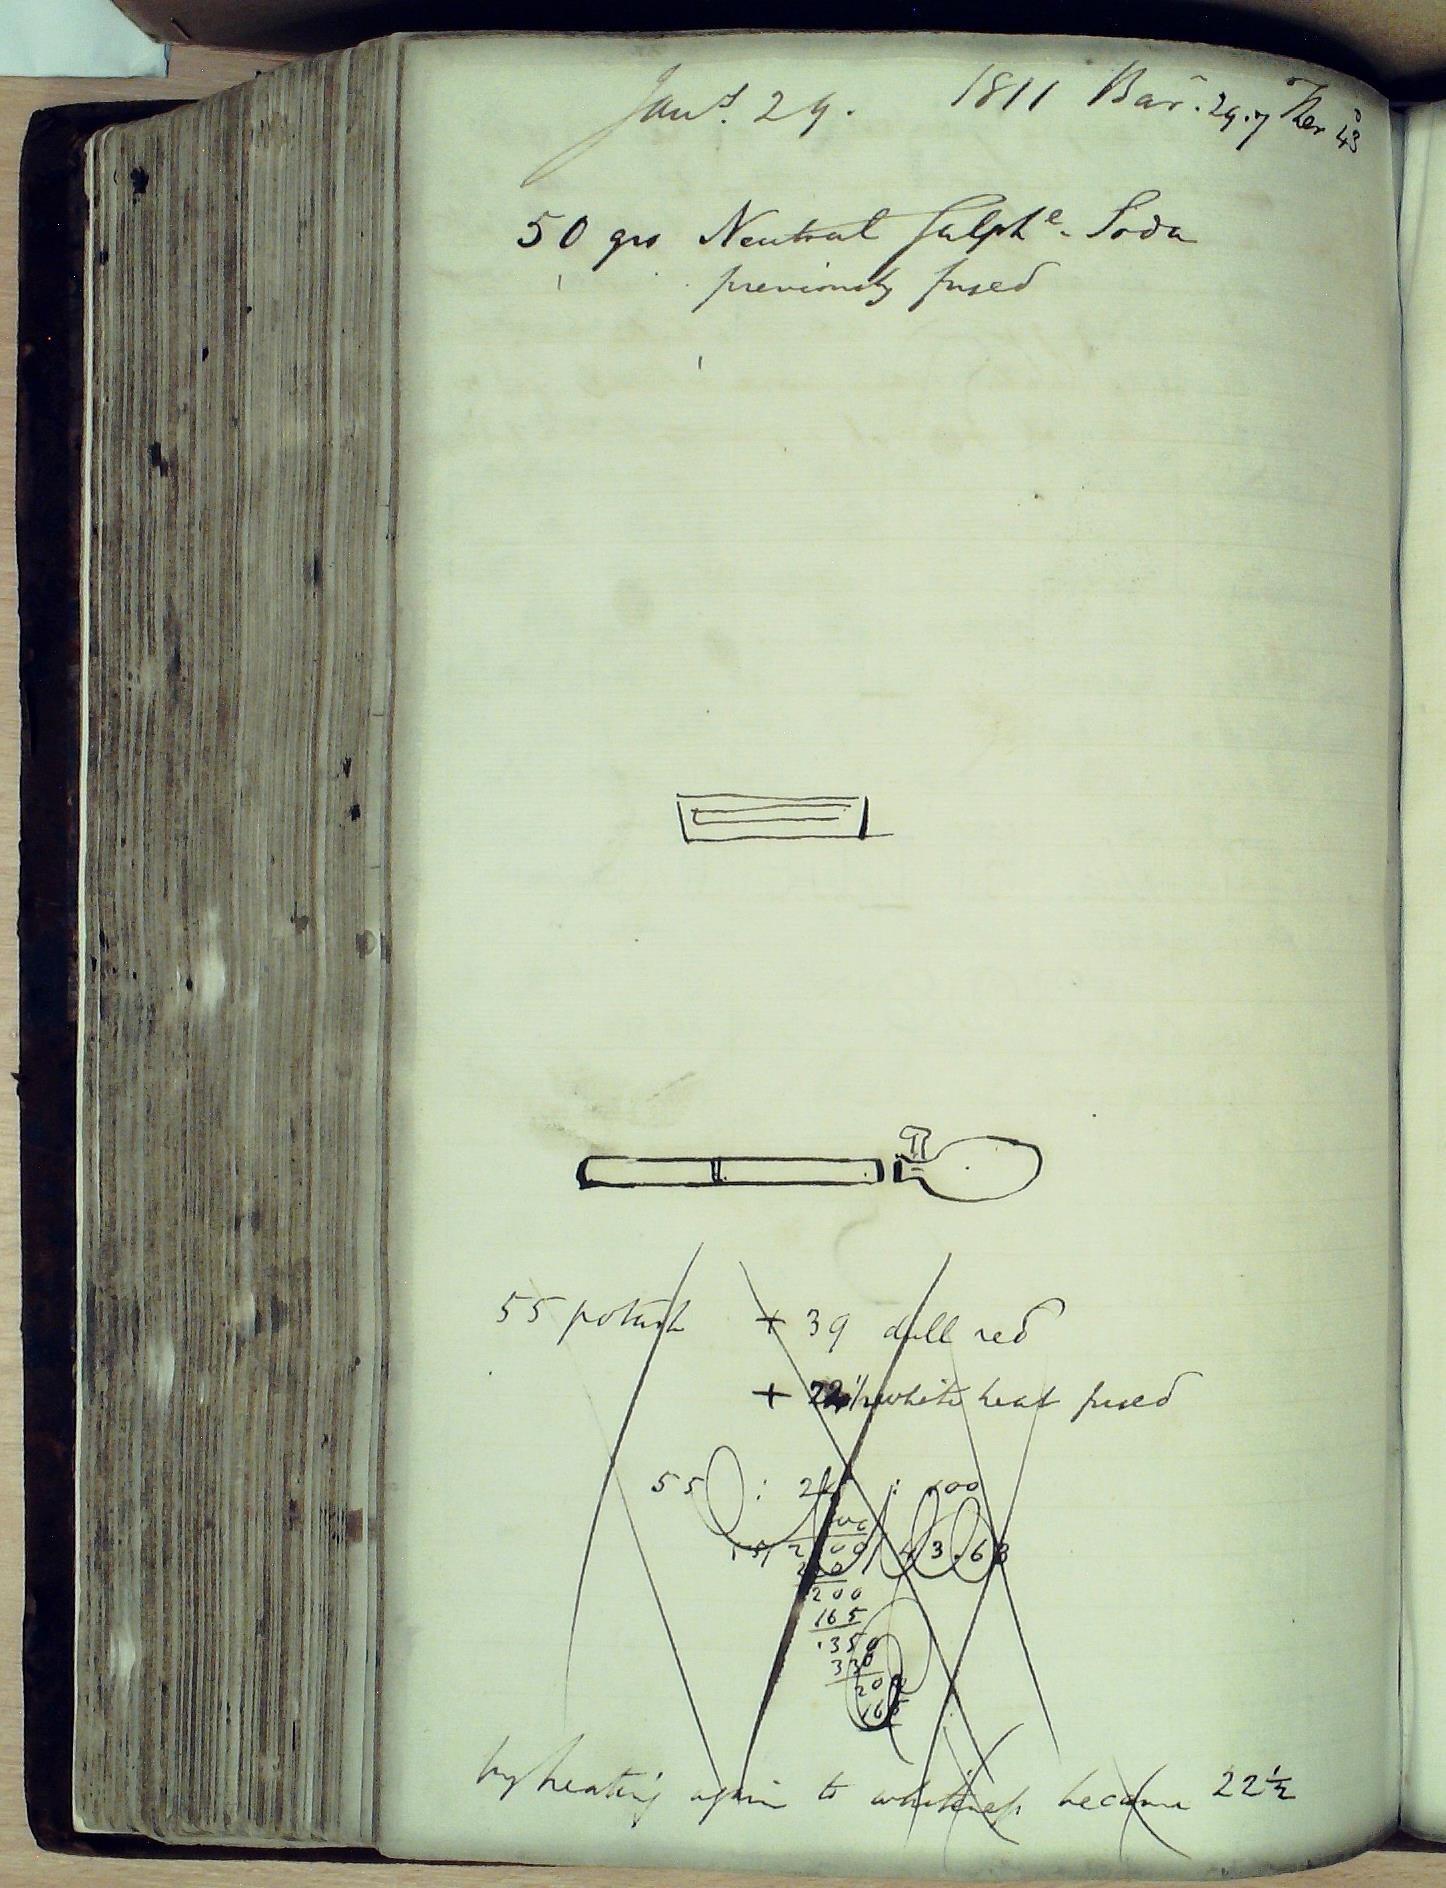 Jany. 29. 1811 Bar. 29.7 Ther 43°
50 grs Neutral Sulphe. Soda
previously fused
55 potash + 39 dull red
+ 22½ white heat fused
55 : 24 : 100
55) 2400 ( 43.63
220
200
165
350
330
200
165
by heating again to whiteness became 22½